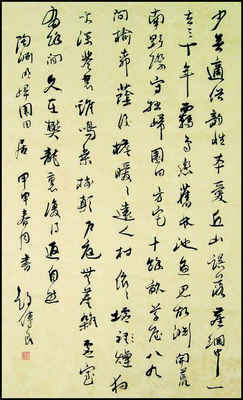 少無適俗韵性本愛丘山誤落塵網中一
去三十年羈鳥戀舊林池魚思故淵開荒
南野際守拙歸園田方宅十餘畝草屋八九
間榆柳蔭後檐曖曖遠人村依依墟里煙狗
吠深巷中鷄鳴桑樹顛户庭無塵雜虛室
有餘閒久在樊籠裏復得返自然
陶淵明歸園田居 甲申春月書